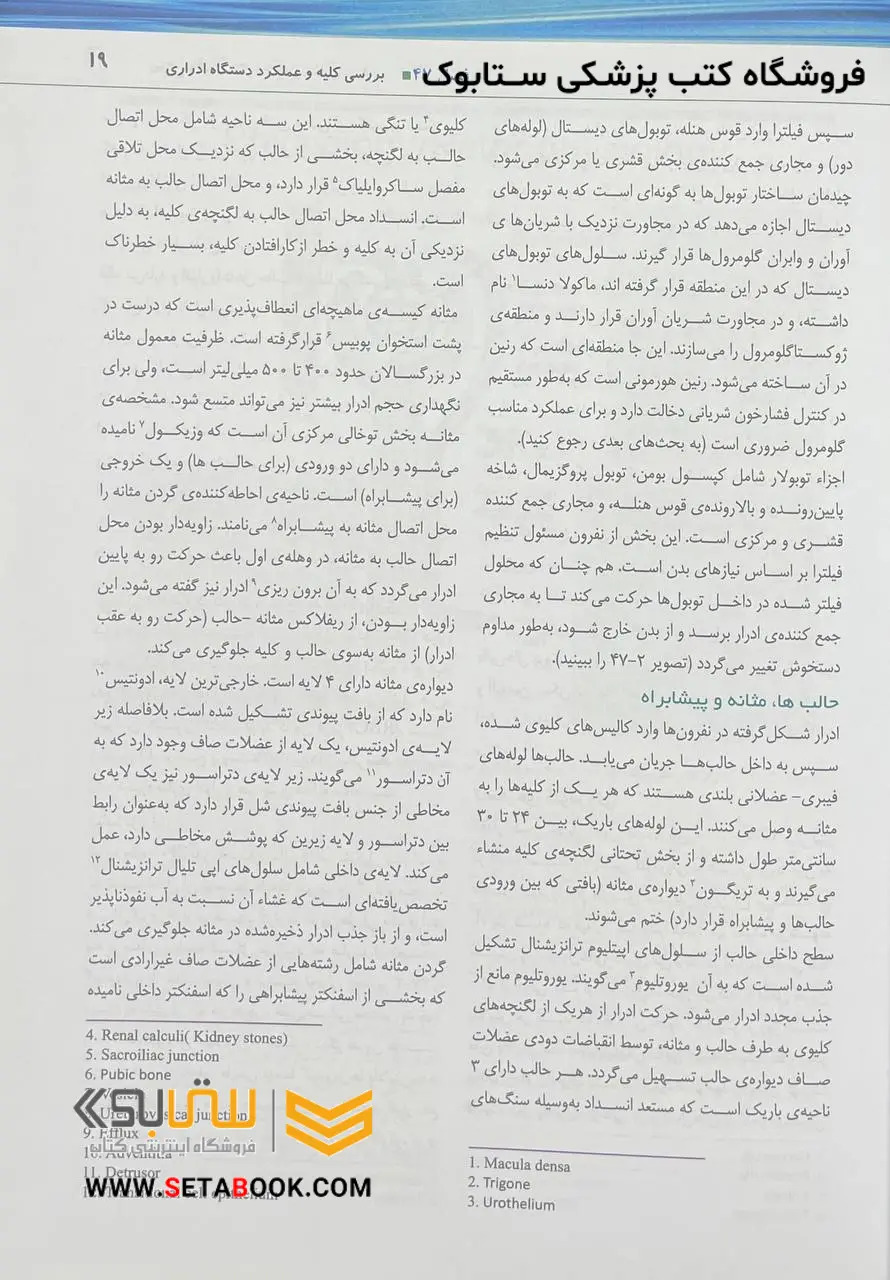 فروشگاه کتب پزشکی ســتابوک
۴۷ ■ بررسی کلیه و عملکرد دستگاه ادراری
۱۹
سـپس فیلترا وارد قوس هنله، توبول‌های دیستال (لوله‌های
دور) و مجاری جمع کننده‌ی بخش قشری یا مرکزی می‌شود.
چیدمان سـاختار توبول‌ها به گونه‌ای است که به توبول‌های
دیسـتال اجازه می‌دهد که در مجاورت نزدیک با شریان‌ها ی
آوران و وابران گلومرول‌ها قرار گیرند. سـلول‌های توبول‌های
دیسـتال که در این منطقه قرار گرفته اند، ماکولا دنسا۱ نام
داشـته، و در مجاورت شـریان آوران قرار دارنـد و منطقه‌ی
ژوکسـتاگلومرول را می‌سازند. این جا منطقه‌ای است که رنین
در آن سـاخته می‌شود. رنین هورمونی است که به‌طور مستقیم
در کنترل فشارخون شریانی دخالت دارد و برای عملکرد مناسب
گلومرول ضروری است (به بحث‌های بعدی رجوع کنید).
اجزاء توبولار شامل کپسـول بومن، توبول پروگزیمال، شاخه
پایین‌رونـده و بالارونده‌ی قوس هنلـه، و مجاری جمع کننده
قشـری و مرکزی است. این بخش از نفرون مسئول تنظیم
فیلترا بر اسـاس نیازهای بدن است. هم چنـان که محلول
فیلتر شـده در داخـل توبول‌ها حرکت می‌کند تـا به مجاری
جمع کننده‌ی ادرار برسـد و از بدن خارج شـود، به‌طور مداوم
دستخوش تغییر می‌گردد (تصویر ۲-۴۷ را ببینید).
حالب ها، مثانه و پیشابراه
ادرار شـکل‌گرفته در نفرون‌ها وارد کالیس‌های کلیوی شـده،
سـپس به داخل حالب‌هـا جریان می‌یابـد. حالب‌ها لوله‌های
فیبری- عضلانی بلندی هستند که هر یک از کلیه‌ها را به
مثانـه وصل می‌کنند. ایـن لوله‌های باریک، بیـن ۲۴ تا ۳۰
سانتی‌متر طول داشته و از بخش تحتانی لگنچه‌ی کلیه منشاء
می‌گیرند و به تریگـون۲ دیواره‌ی مثانه (بافتی که بین ورودی
حالب‌ها و پیشابراه قرار دارد) ختم می‌شوند.
سطح داخلی حالب از سـلول‌های اپیتلیوم ترانزیشنال تشکیل
شـده اسـت که به آن یوروتلیوم۳ می‌گویند. یوروتلیوم مانع از
جذب مجدد ادرار می‌شود. حرکت ادرار از هریک از لگنچه‌های
کلیوی به طرف حالب و مثانه، توسط انقباضات دودی عضلات
صـاف دیواره‌ی حالب تسـهیل می‌گردد. هـر حالب دارای ۳
ناحیه‌ی باریک است که مستعد انسداد به‌وسیله سنگ‌های
1. Macula densa
2. Trigone
3. Urothelium
کلیوی۴ یا تنگی هسـتند. این سـه ناحیه شامل محل اتصال
حالـب به لگنچه، بخشـی از حالب که نزدیـک محل تلاقی
مفصل سـاکروایلیاک۵ قرار دارد، و محل اتصال حالب به مثانه
اسـت. انسـداد محل اتصال حالب به لگنچه‌ی کلیه، به دلیل
نزدیکی آن به کلیه و خطر ازکارافتادن کلیه، بسیار خطرناک
است.
مثانه کیسه‌ی ماهیچه‌ای انعطاف‌پذیری است که درست در
پشت استخوان پوبیس۶ قرارگرفته است. ظرفیت معمول مثانه
در بزرگسـالان حدود ۴۰۰ تا ۵۰۰ میلی‌لیتر اسـت، ولی برای
نگهداری حجم ادرار بیشتر نیز می‌تواند متسع شود. مشخصه‌ی
مثانـه بخش توخالی مرکزی آن اسـت که وزیکـول۷ نامیده
می‌شـود و دارای دو ورودی (برای حالـب ها) و یک خروجی
(برای پیشـابراه) است. ناحیه‌ی احاطه‌کننده‌ی گردن مثانه را
محل اتصال مثانه به پیشـابراه۸ می‌نامند. زاویه‌دار بودن محل
اتصال حالب به مثانه، در وهله‌ی اول باعث حرکت رو به پایین
ادرار می‌گردد که به آن برون ریزی۹ ادرار نیز گفته می‌شود. این
زاویه‌دار بـودن، از ریفلاکس مثانه –حالب (حرکت رو به عقب
ادرار) از مثانه به‌سوی حالب و کلیه جلوگیری می‌کند.
دیواره‌ی مثانه دارای ۴ لایه است. خارجی‌ترین لایه، ادونتیس۱۰
نام دارد که از بافت پیوندی تشـکیل شده است. بلافاصله زیر
لایـه‌ی ادونتیس، یک لایه از عضلات صاف وجود دارد که به
آن دتراسـور۱۱ می‌گویند. زیر لایه‌ی دتراسـور نیز یک لایه‌ی
مخاطی از جنس بافت پیوندی شل قرار دارد که به‌عنوان رابط
بین دتراسـور و لایه زیرین که پوشـش مخاطـی دارد، عمل
می‌کند. لایه‌ی داخلی شامل سلول‌های اپی تلیال ترانزیشنال۱۲
تخصص‌یافته‌ای است که غشاء آن نسبت به آب نفوذناپذیر
است، و از باز جذب ادرار ذخیره‌شده در مثانه جلوگیری می‌کند.
گردن مثانه شامل رشته‌هایی از عضلات صاف غیرارادی است
که بخشـی از اسفنکتر پیشابراهی را که اسفنکتر داخلی نامیده
4. Renal calculi( Kidney stones)
5. Sacroiliac junction
6. Pubic bone
junction
9. Efflux
10. Adventitia
11. Detrusor
ستابوک
فروشگاه اینترنتی کتاب
WWW.SETABOOK.COM